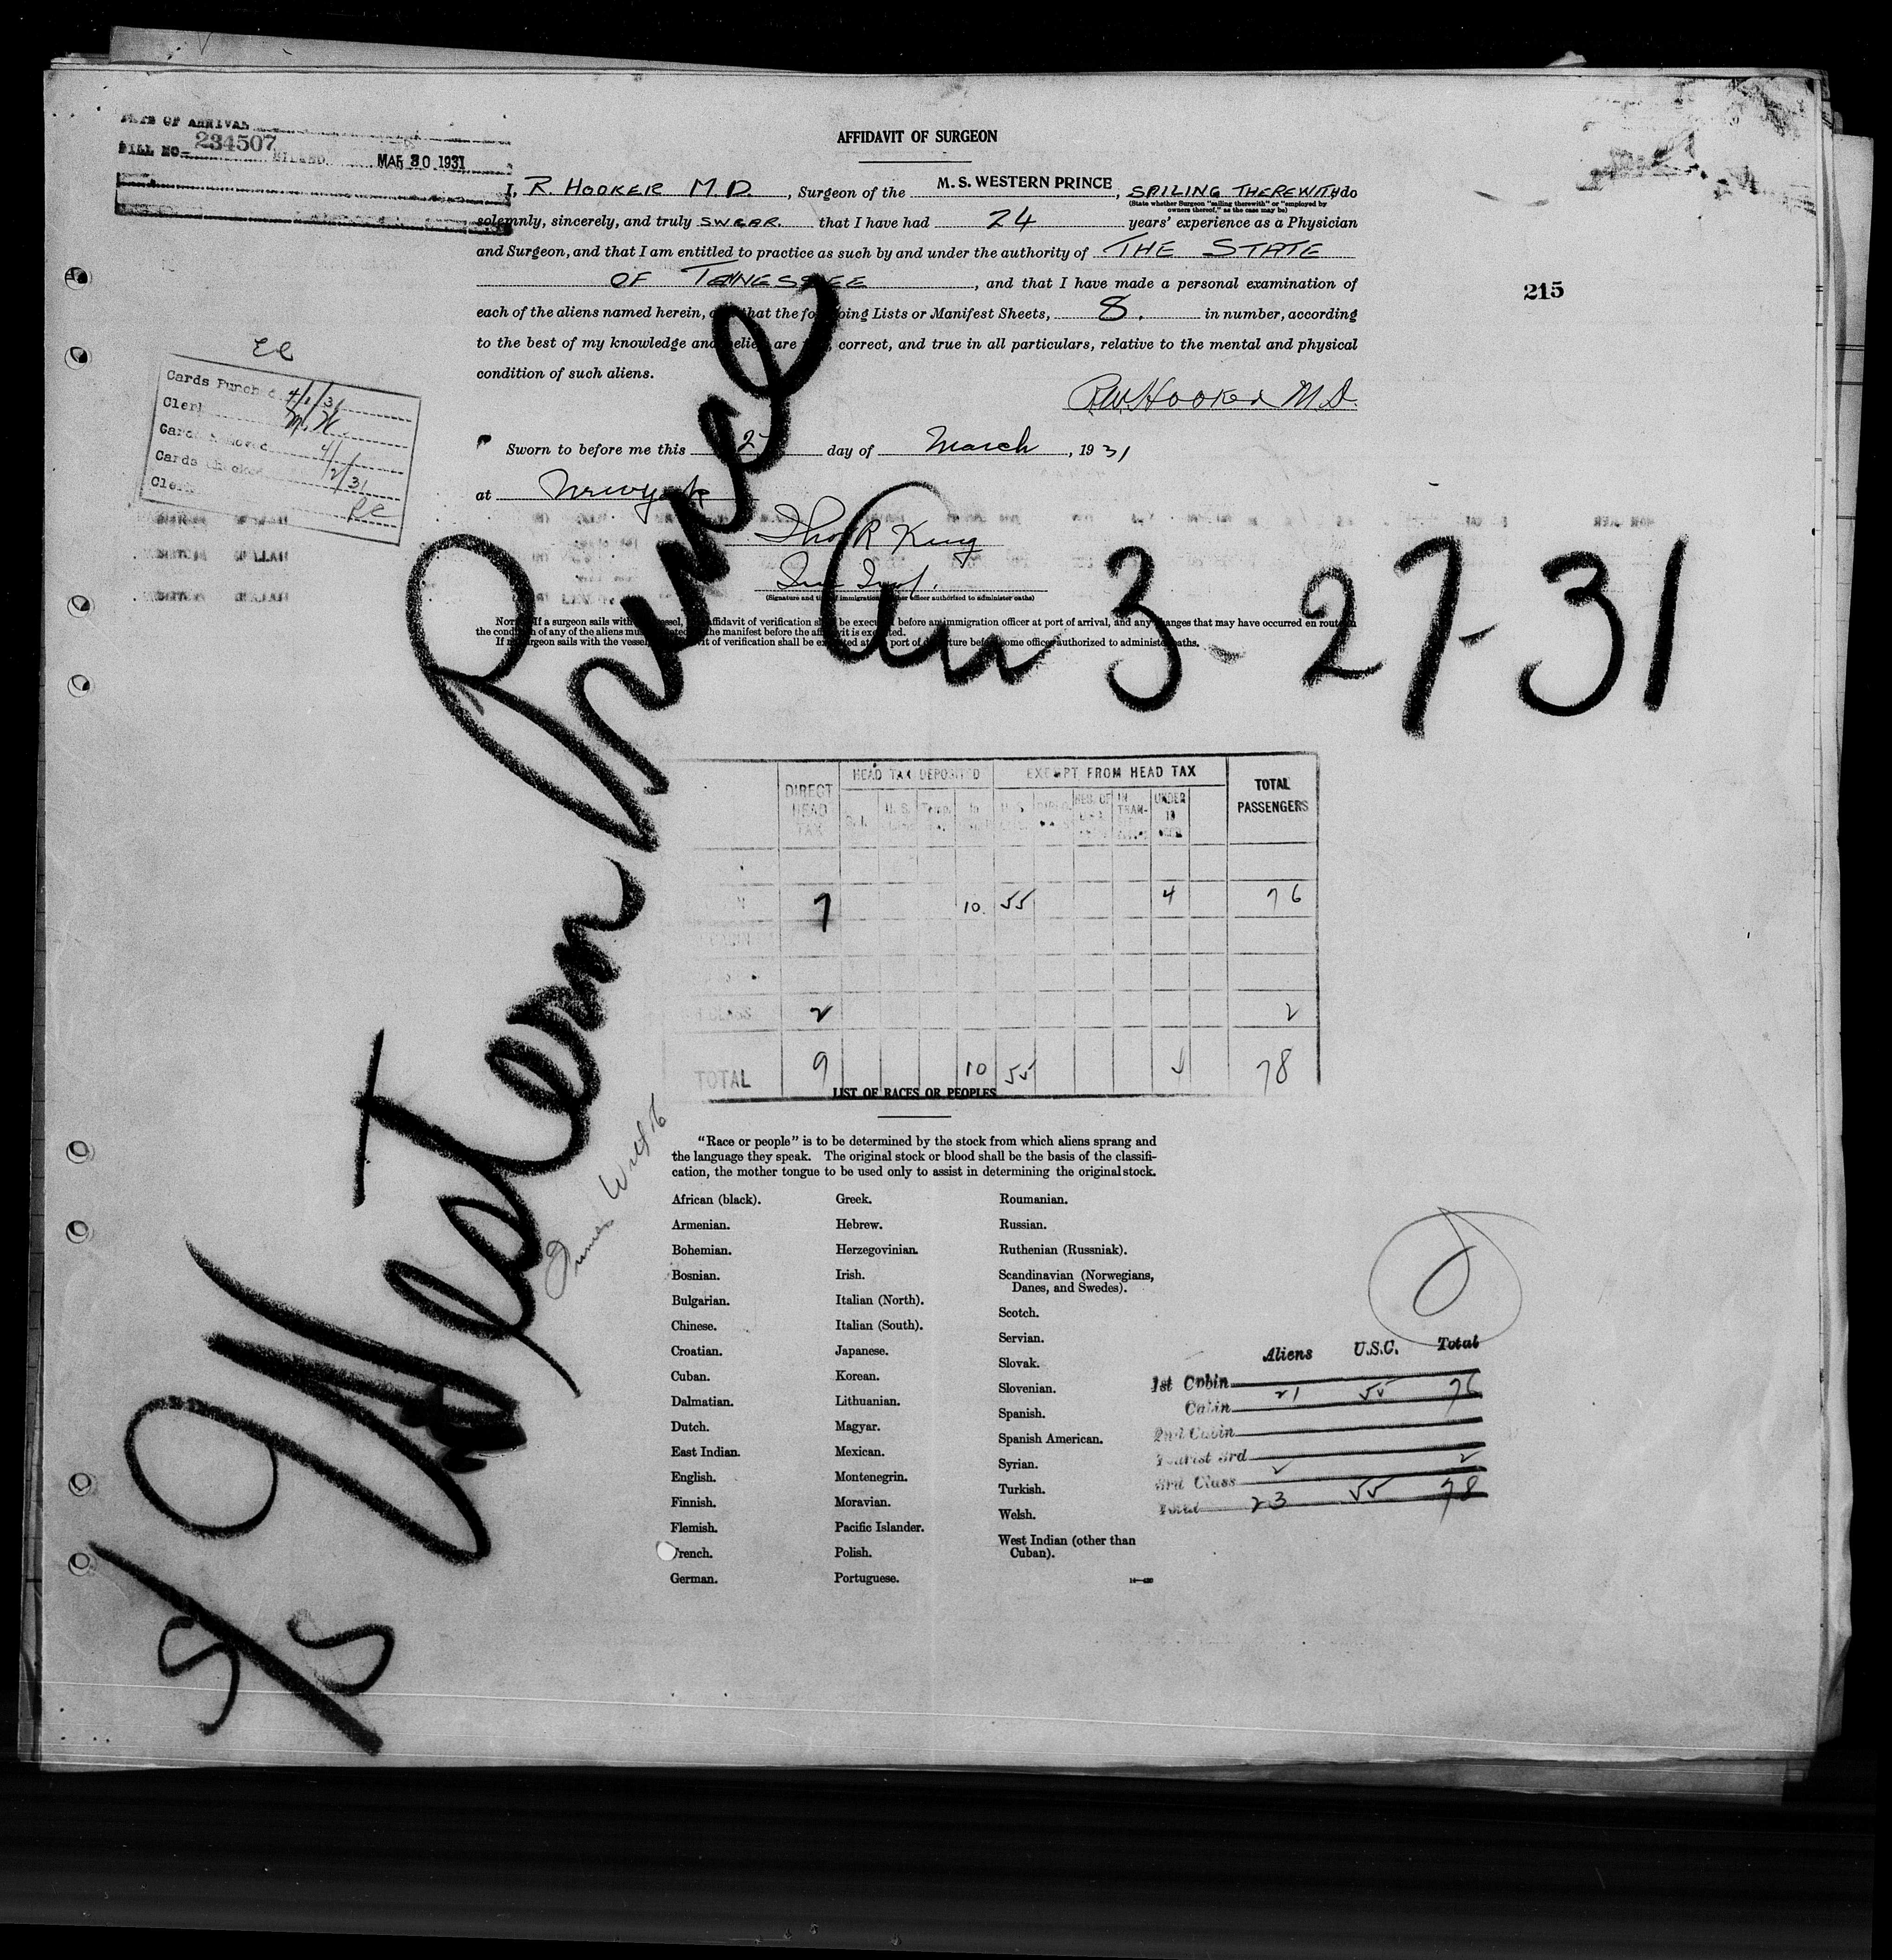 DATE OF ARRIVAL
BILL NO. 234507
MAR 30 1931
AFFIDAVIT OF SURGEON
I, R. HOOKER M D., Surgeon of the M. S. WESTERN PRINCE, SAILING THEREWITH, do
(State whether Surgeon "sailing therewith" or "employed by
owners thereof," as the case may be)
solemnly, sincerely, and truly SWEAR. that I have had 24 years' experience as a Physician
and Surgeon, and that I am entitled to practice as such by and under the authority of THE STATE
OF TENNESSEE, and that I have made a personal examination of
215
each of the aliens named herein, and that the following Lists or Manifest Sheets, 8. in number, according
to the best of my knowledge and belief, are full, correct, and true in all particulars, relative to the mental and physical
condition of such aliens.
R.W. Hooker M.D.
Cards Punched 4/1/31
Clerk M.K.
Cards Removed 4/1
Cards Checked 4/2/31
Clerk
Sworn to before me this day of March, 1931
at New York
Thos R King
Imm Insp.
(Signature and title of immigration or other officer authorized to administer oaths)
Western Prince
Arr 3-27-31
NOTE.—If a surgeon sails with the vessel, the affidavit of verification shall be executed before an immigration officer at port of arrival, and any changes that may have occurred en route in
the condition of any of the aliens must be stated on the manifest before the affidavit is executed.
If no surgeon sails with the vessel, affidavit of verification shall be executed at the port of departure before some officer authorized to administer oaths.
DIRECT HEAD TAX HEAD TAX DEPOSITED EXEMPT FROM HEAD TAX TOTAL PASSENGERS
S. I. U. S. Temp. In U. S. DIPLO. RES. OF U.S.A. IN TRAN- UNDER 13
7 10 55 4 76
CLASS 2 2
TOTAL 9 10 55 78
LIST OF RACES OR PEOPLES
"Race or people" is to be determined by the stock from which aliens sprang and
the language they speak. The original stock or blood shall be the basis of the classifi-
cation, the mother tongue to be used only to assist in determining the original stock.
African (black).
Armenian.
Bohemian.
Bosnian.
Bulgarian.
Chinese.
Croatian.
Cuban.
Dalmatian.
Dutch.
East Indian.
English.
Finnish.
Flemish.
French.
German.
Greek.
Hebrew.
Herzegovinian.
Irish.
Italian (North).
Italian (South).
Japanese.
Korean.
Lithuanian.
Magyar.
Mexican.
Montenegrin.
Moravian.
Pacific Islander.
Polish.
Portuguese.
Roumanian.
Russian.
Ruthenian (Russniak).
Scandinavian (Norwegians,
Danes, and Swedes).
Scotch.
Servian.
Slovak.
Slovenian.
Spanish.
Spanish American.
Syrian.
Turkish.
Welsh.
West Indian (other than
Cuban).
Aliens U.S.C. Total
1st Cabin 21 55 76
Cabin
2nd Cabin
Tourist 3rd
3rd Class 2 2
Total 23 55 78
S/S